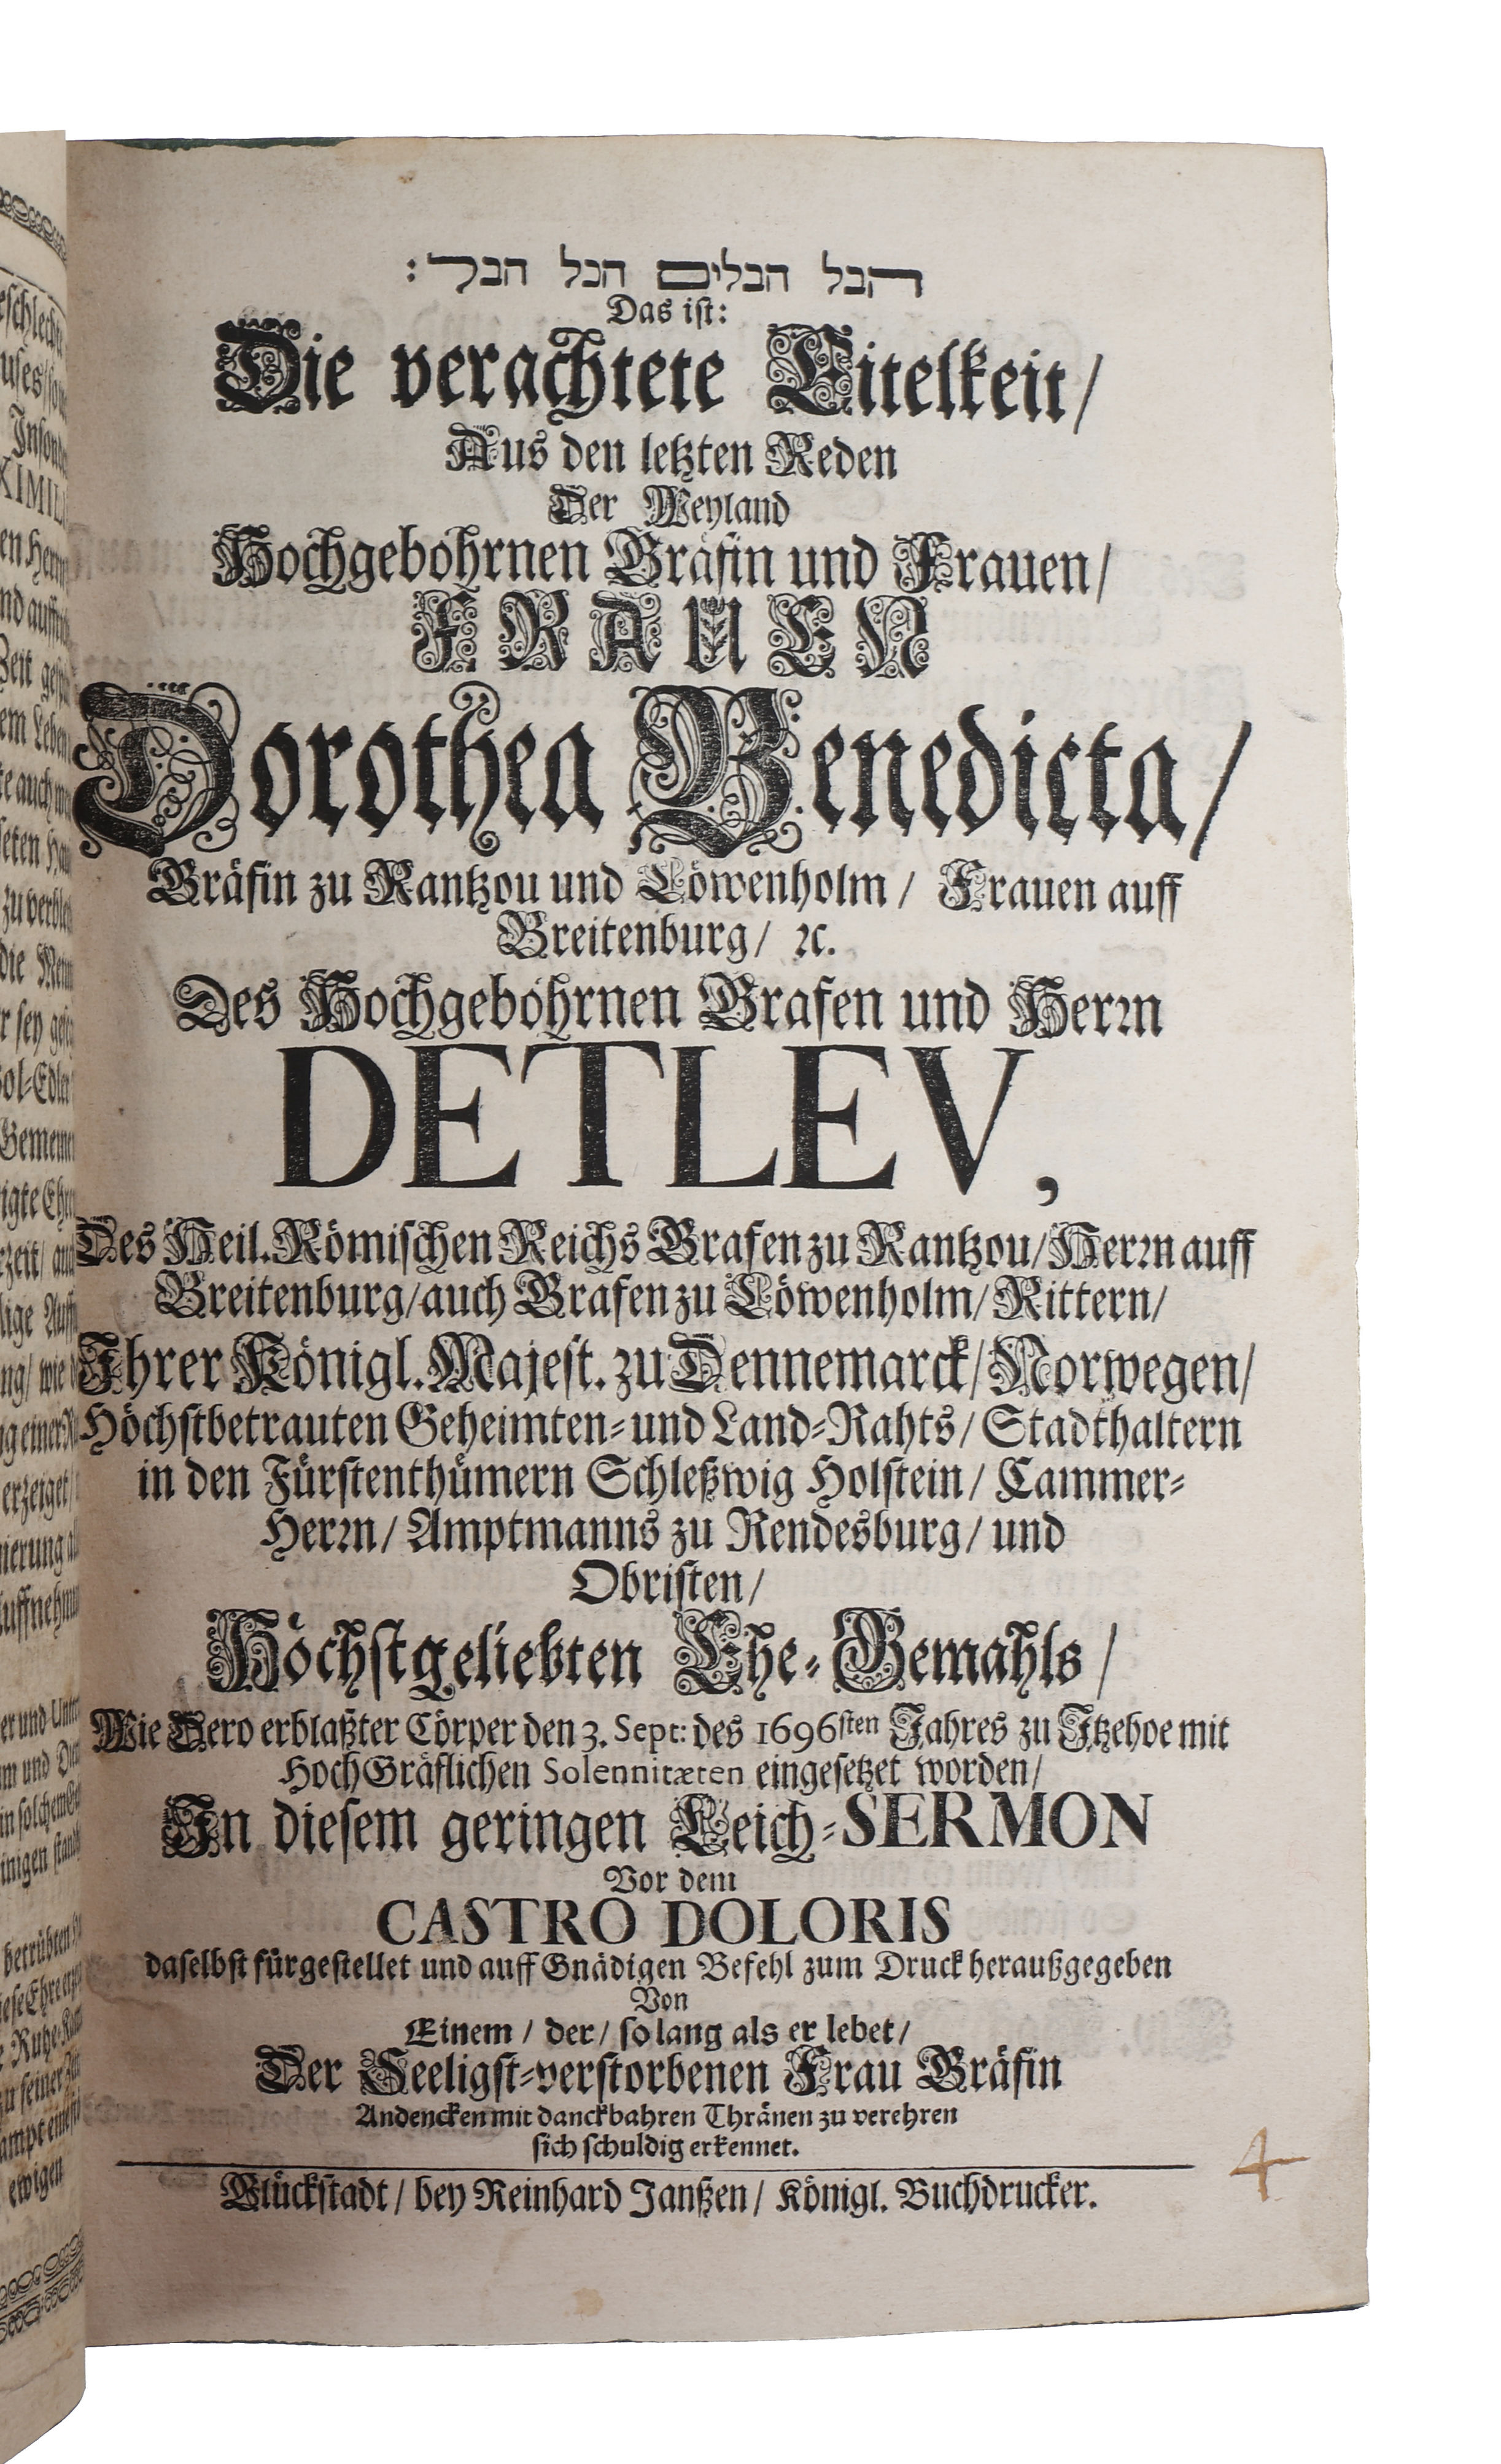 הבל הבלים הכל הבל:
Das ist:
Die verachtete Eitelkeit/
Aus den letzten Reden
Der Weyland
Hochgebohrnen Gräfin und Frauen/
FRAUEN
Dorothea Benedicta/
Gräfin zu Rantzou und Löwenholm/ Frauen auff
Breitenburg/ ꝛc.
Des Hochgebohrnen Grafen und Herrn
DETLEV,
Des Heil. Römischen Reichs Grafen zu Rantzou/ Herrn auff
Breitenburg/ auch Grafen zu Löwenholm/ Rittern/
Ihrer Königl. Majest. zu Dennemarck/ Norwegen/
Höchstbetrauten Geheimten- und Land-Rahts/ Stadthaltern
in den Fürstenthümern Schleßwig Holstein/ Cammer-
Herrn/ Amptmanns zu Rendesburg/ und
Obristen/
Höchstgeliebten Ehe-Gemahls/
Wie Dero erblaßter Cörper den 3. Sept: des 1696sten Jahres zu Itzehoe mit
HochGräflichen Solennitæten eingesetzet worden/
In diesem geringen Leich-SERMON
Vor dem
CASTRO DOLORIS
daselbst fürgestellet und auff Gnädigen Befehl zum Druck heraußgegeben
Von
Einem/ der/ so lang als er lebet/
Der Seeligst-verstorbenen Frau Gräfin
Andencken mit danckbahren Thränen zu verehren
sich schuldig erkennet.
Glückstadt/ bey Reinhard Janßen/ Königl. Buchdrucker.
4